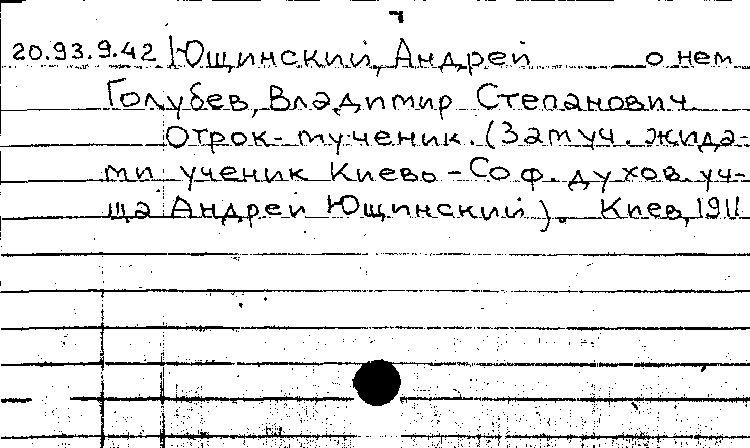 20.93.9.42 Ющинский, Андрей о нем
Голубев, Владимир Степанович
Отрок-мученик. (Замуч. жида-
ми ученик Киево-Соф. духов. уч-
ща Андрей Ющинский). Киев, 1911